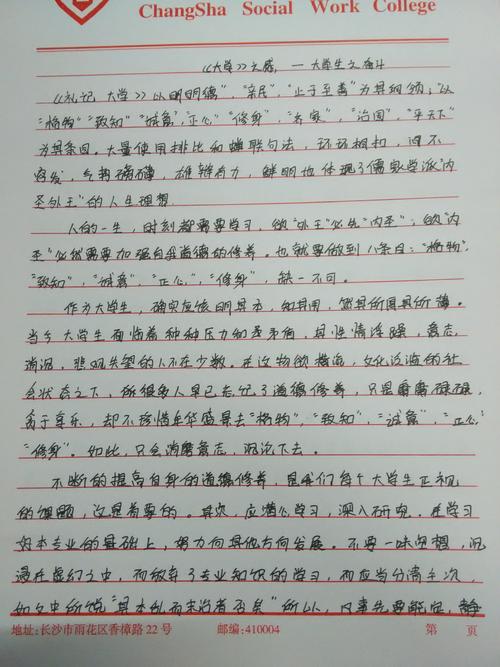 ChangSha Social Work College
《大学》之感，—大学生之奋斗
《礼记·大学》以"明明德"，"亲民"，"止于至善"为其纲领，"以
"格物""致知""诚意""正心""修身"，"齐家"，"治国"，"平天下"
为其条目。大量使用排比和蝉联句法，环环相扣，间不
容发，气势磅礴，雄辩有力，鲜明地体现了儒家学派"内
圣外王"的人生理想。
人的一生，时刻都需要学习，欲"外王"必先"内圣"；欲"内
圣"必然需要加强自我道德的修养。也就要做到八条目："格物"，
"致知"，"诚意"，"正心"，"修身"，缺一不可。
作为大学生，确实应该明其本，知其用，
当今大学生面临着种种压力和矛盾，惰性情泽强，意志
消沉，悲观失望的人不在少数。在这物欲横流，文化泛滥的社
会状态之下，很多人早已忘记了道德修养，只是庸庸碌碌，
贪于享乐，却不珍惜年华盛景去"格物"，"致知"，"诚意"，"正心"
"修身"。如此，只会消磨意志，沉沦下去。
不断的提高自身的道德修养，是我们每个大学生正视
的课题，这是首要的。其次，应潜心学习，深入研究，在学习
好本专业的基础上，努力向其他方向发展。不要一味空想，沉
湎在虚幻之中，而放弃了专业知识的学习，而应当分清主次，
如文中所说"其本乱而末治者否矣"所以，凡事先要能定，静
地址：长沙市雨花区香樟路22号 邮编：410004 第 页